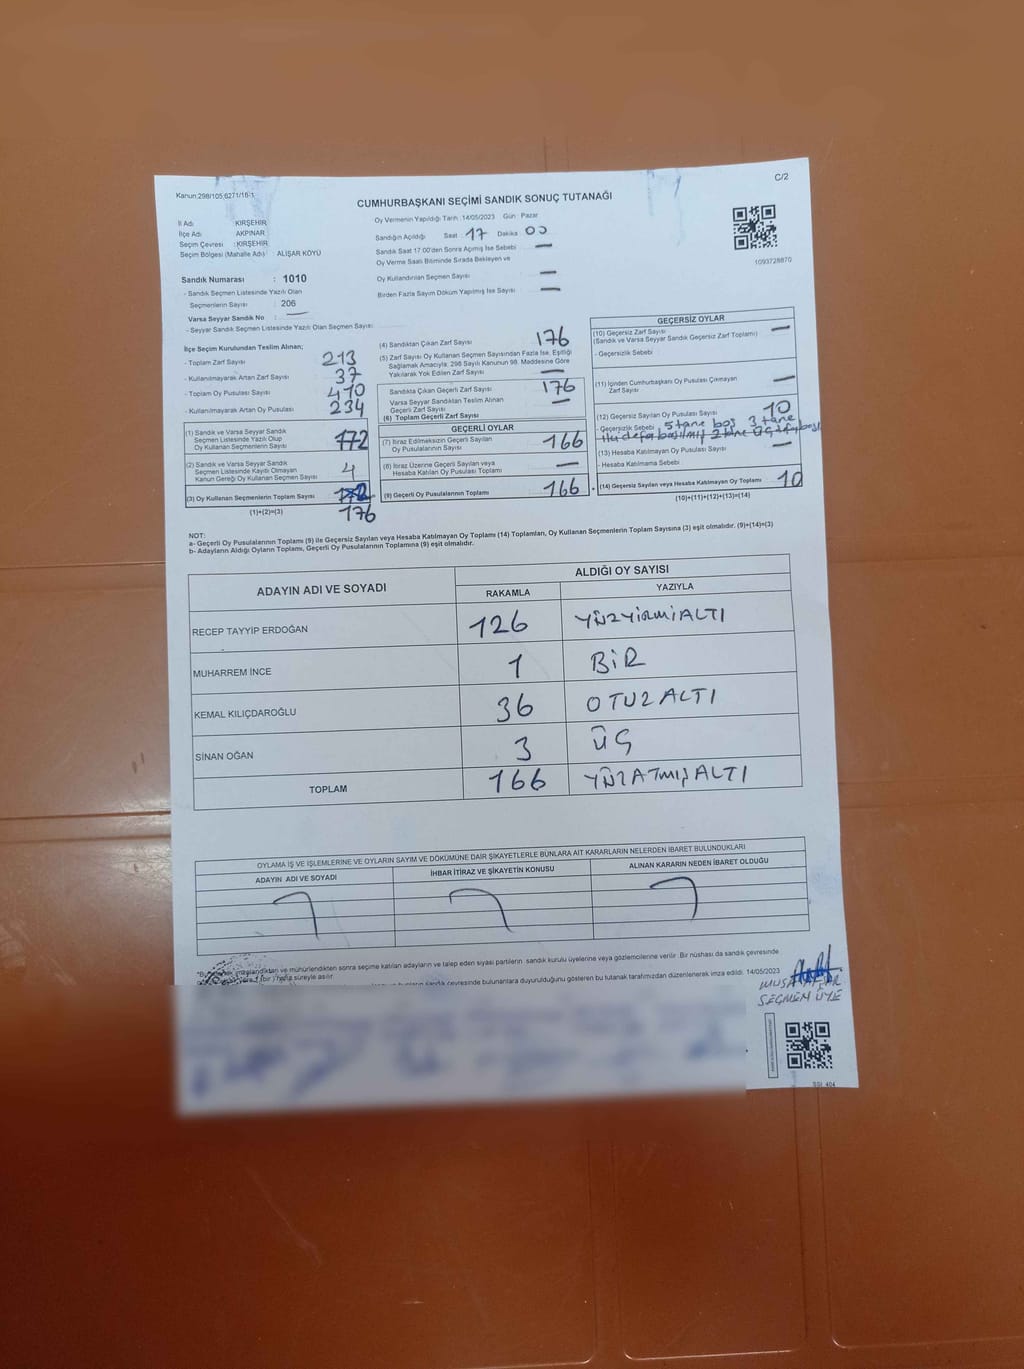 Kanun:298/105,6271/16-1
C/2
CUMHURBAŞKANI SEÇİMİ SANDIK SONUÇ TUTANAĞI
İl Adı : KIRŞEHİR
İlçe Adı : AKPINAR
Seçim Çevresi : KIRŞEHİR
Seçim Bölgesi (Mahalle Adı) : ALIŞAR KÖYÜ
Sandık Numarası : 1010
- Sandık Seçmen Listesinde Yazılı Olan
Seçmenlerin Sayısı : 206
Varsa Seyyar Sandık No :
- Seyyar Sandık Seçmen Listesinde Yazılı Olan Seçmen Sayısı:
Oy Vermenin Yapıldığı Tarih :14/05/2023 Gün : Pazar
Sandığın Açıldığı Saat 17 Dakika 00
Sandık Saat 17:00'den Sonra Açılmış İse Sebebi —
Oy Verme Saati Bitiminde Sırada Bekleyen ve
Oy Kullandırılan Seçmen Sayısı —
Birden Fazla Sayım Döküm Yapılmış İse Sayısı —
1093728870
İlçe Seçim Kurulundan Teslim Alınan;
- Toplam Zarf Sayısı 213
- Kullanılmayarak Artan Zarf Sayısı 37
- Toplam Oy Pusulası Sayısı 410
- Kullanılmayarak Artan Oy Pusulası 234
(1) Sandık ve Varsa Seyyar Sandık
Seçmen Listesinde Yazılı Olup
Oy Kullanan Seçmenlerin Sayısı 172
(2) Sandık ve Varsa Seyyar Sandık
Seçmen Listesinde Kayıtlı Olmayan
Kanun Gereği Oy Kullanan Seçmen Sayısı 4
(3) Oy Kullanan Seçmenlerin Toplam Sayısı
(1)+(2)=(3) 176
(4) Sandıktan Çıkan Zarf Sayısı 176
(5) Zarf Sayısı Oy Kullanan Seçmen Sayısından Fazla İse, Eşitliği
Sağlamak Amacıyla; 298 Sayılı Kanunun 98. Maddesine Göre
Yakılarak Yok Edilen Zarf Sayısı —
Sandıkta Çıkan Geçerli Zarf Sayısı 176
Varsa Seyyar Sandıktan Teslim Alınan
Geçerli Zarf Sayısı —
(6) Toplam Geçerli Zarf Sayısı
GEÇERLİ OYLAR
(7) İtiraz Edilmeksizin Geçerli Sayılan
Oy Pusulalarının Sayısı 166
(8) İtiraz Üzerine Geçerli Sayılan veya
Hesaba Katılan Oy Pusulası Toplamı —
(9) Geçerli Oy Pusulalarının Toplamı 166
GEÇERSİZ OYLAR
(10) Geçersiz Zarf Sayısı —
(Sandık ve Varsa Seyyar Sandık Geçersiz Zarf Toplamı)
- Geçersizlik Sebebi
(11) İçinden Cumhurbaşkanı Oy Pusulası Çıkmayan
Zarf Sayısı —
(12) Geçersiz Sayılan Oy Pusulası Sayısı 10
- Geçersizlik Sebebi 5 tane boş 3 tane
iki defa basılmış 2 tane üç
(13) Hesaba Katılmayan Oy Pusulası Sayısı —
- Hesaba Katılmama Sebebi
(14) Geçersiz Sayılan veya Hesaba Katılmayan Oy Toplamı 10
(10)+(11)+(12)+(13)=(14)
NOT:
a- Geçerli Oy Pusulalarının Toplamı (9) ile Geçersiz Sayılan veya Hesaba Katılmayan Oy Toplamı (14) Toplamları, Oy Kullanan Seçmenlerin Toplam Sayısına (3) eşit olmalıdır. (9)+(14)=(3)
b- Adayların Aldığı Oyların Toplamı, Geçerli Oy Pusulalarının Toplamına (9) eşit olmalıdır.
ADAYIN ADI VE SOYADI ALDIĞI OY SAYISI
RAKAMLA YAZIYLA
RECEP TAYYİP ERDOĞAN 126 YÜZYİRMİALTI
MUHARREM İNCE 1 BİR
KEMAL KILIÇDAROĞLU 36 OTUZALTI
SİNAN OĞAN 3 ÜÇ
TOPLAM 166 YÜZATMIŞALTI
OYLAMA İŞ VE İŞLEMLERİNE VE OYLARIN SAYIM VE DÖKÜMÜNE DAİR ŞİKAYETLERLE BUNLARA AİT KARARLARIN NELERDEN İBARET BULUNDUKLARI
ADAYIN ADI VE SOYADI İHBAR İTİRAZ VE ŞİKAYETİN KONUSU ALINAN KARARIN NEDEN İBARET OLDUĞU
imzalandıktan ve mühürlendikten sonra seçime katılan adayların ve talep eden siyasi partilerin sandık kurulu üyelerine veya gözlemcilerine verilir. Bir nüshası da sandık çevresinde
süreyle asılır.
sandık çevresinde bulunanlara duyurulduğunu gösteren bu tutanak tarafımızdan düzenlenerek imza edildi. 14/05/2023
SEÇMEN ÜYE
SSI_404